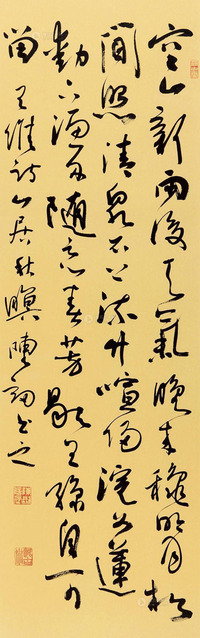 空山新雨後天氣晚来穐明月松
間照清泉石上流竹喧歸浣女蓮
動下漁舟隨意春芳歇王孫自可
留王維詩山居秋暝陳書之